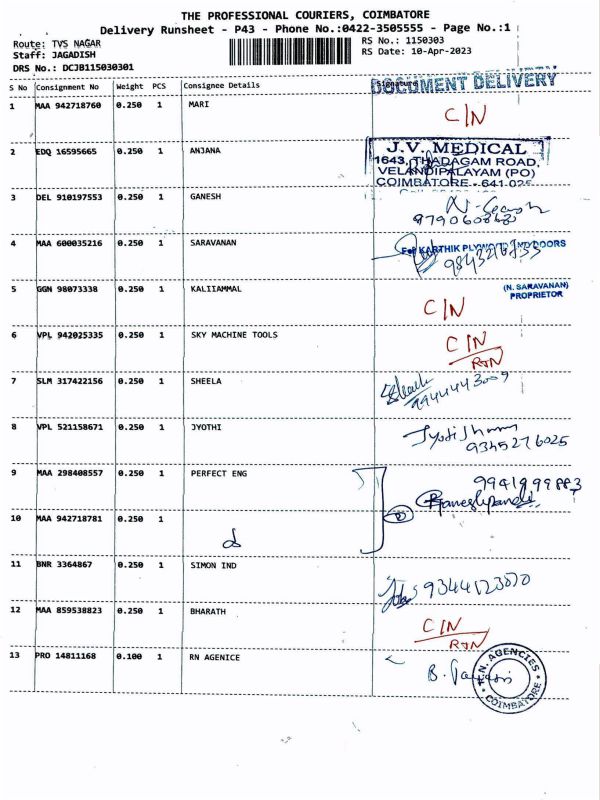 THE PROFESSIONAL COURIERS, COIMBATORE
Delivery Runsheet - P43 - Phone No.:0422-3505555 - Page No.:1
Route: TVS NAGAR
RS No.: 1150303
Staff: JAGADISH
RS Date: 10-Apr-2023
DRS No.: DCJB115030301
S No Consignment No Weight PCS Consignee Details Signature
DOCUMENT DELIVERY
1 MAA 942718760 0.250 1 MARI C/N
2 EDQ 16595665 0.250 1 ANJANA
J.V. MEDICAL
1643, THADAGAM ROAD,
VELANDIPALAYAM (PO)
COIMBATORE - 641 025
3 DEL 910197553 0.250 1 GANESH
4 MAA 600035216 0.250 1 SARAVANAN
For KARTHIK PLYWOOD AND DOORS
(N. SARAVANAN)
PROPRIETOR
5 GGN 98073338 0.250 1 KALIIAMMAL C/N
6 VPL 942025335 0.250 1 SKY MACHINE TOOLS C/N
RTN
7 SLM 317422156 0.250 1 SHEELA
9944443009
8 VPL 521158671 0.250 1 JYOTHI
9345276025
9 MAA 298408557 0.250 1 PERFECT ENG
10 MAA 942718781 0.250 1
11 BNR 3364867 0.250 1 SIMON IND
12 MAA 859538823 0.250 1 BHARATH C/N
RTN
13 PRO 14811168 0.100 1 RN AGENICE
R.N. AGENCIES
COIMBATORE